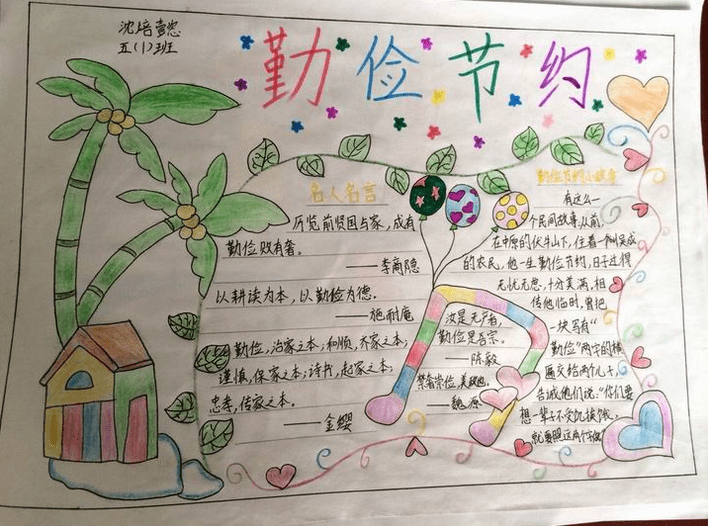 沈培懿
五(1)班
勤俭节约
名人名言
历览前贤国与家，成有
勤俭败有奢。
——李商隐
以耕读为本，以勤俭为德。
——施耐庵
勤俭，治家之本；和顺，齐家之本；
谨慎，保家之本；诗书，起家之本；
忠孝，传家之本。
——金缨
汝是无产者，
勤俭是吾宗。
——陈毅
——魏源
勤俭节约小故事
有这么一
个民间故事，从前，
在中原的伏牛山下，住着一个叫吴成
的农民，他一生勤俭节约，日子过得
无忧无思，十分美满，相
传他临时，曾把
一块写有“
勤俭”两字的横
匾交给两个儿子，
告诫他们说：“你们要
想一辈子不受饥挨饿，
就要照这两个字做